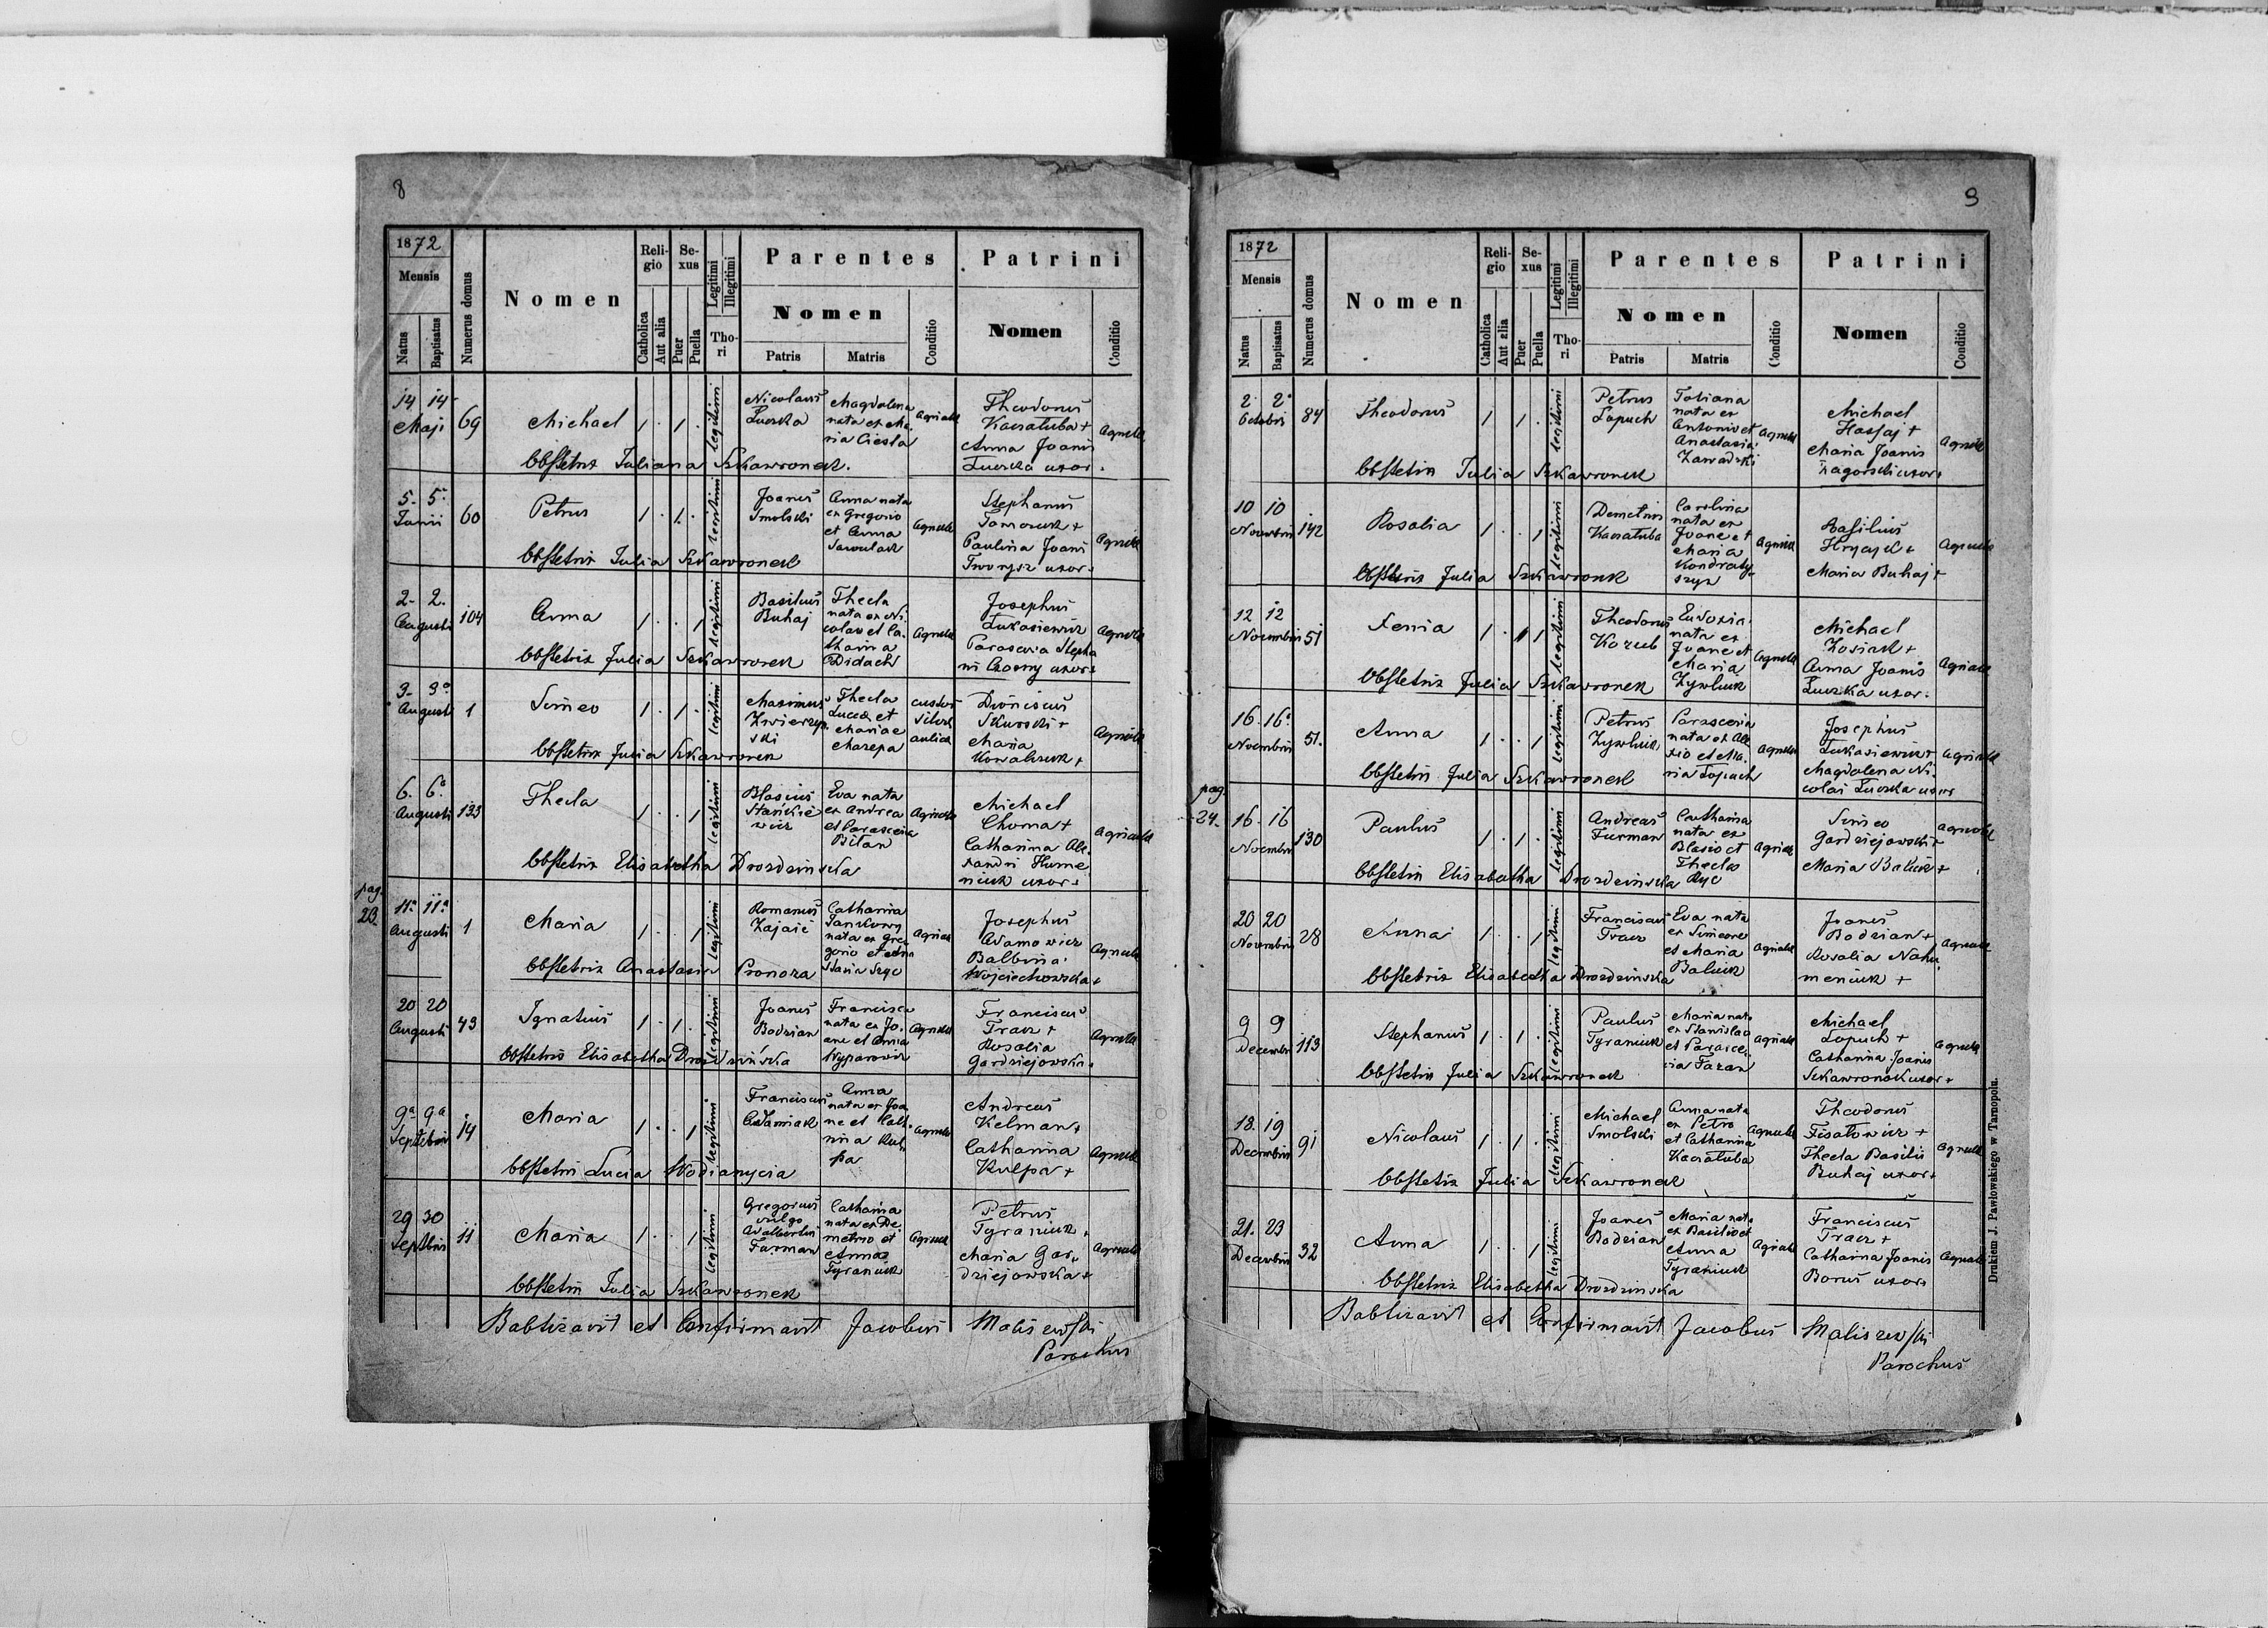 8
1872
Mensis
Natus
Baptisatus
Numerus domus
Nomen
Religio
Catholica
Aut alia
Sexus
Puer
Puella
Legitimi
Illegitimi
Thori
Parentes
Nomen
Patris
Matris
Conditio
Patrini
Nomen
Conditio
14 14
Maji
69
Michael
1 . 1 .
legitimi
Nicolaus
Luczka
Magdalena
nata ex Ma
ria Ciesla
Agricola
Theodorus
Kaczatuba +
Anna Joanis
Luczka uxor.
Agricola
Obstetrix Juliana Szkawronek.
5. 5.
Junii
60
Petrus
1 . 1 .
legitimi
Joanes
Smolski
Anna nata
ex Gregorio
et Anna
Agricola
Stephanus
Paulina Joanis
uxor.
Agricola
Obstetrix Julia Szkawronek
2. 2.
Augusti
104
Anna
1 . . 1
legitimi
Basilius
Buhaj
Thecla
nata ex Ni
colao et Ca
tharina
Didach
Agricola
Josephus
Lukasiewicz
Parascevia Stepha
ni Czorny uxor.
Agricola
Obstetrix Julia Szkawronek
3. 3.
Augusti
1
Simeo
1 . 1 .
legitimi
Maximus
Zwierzyn
ski
Thecla
Lucae et
Mariae
Mazepa
custos
aulica
Dionisius
Skurski +
Maria
Kowalczuk +
Agricola
Obstetrix Julia Szkawronek
6. 6.
Augusti
133
Thecla
1 . . 1
legitimi
Blasius
Stankie
wicz
Eva nata
ex Andrea
et Parascevia
Bilan
Agricola
Michael
Choma +
Catharina Ale
xandri Hume
niuk uxor.
Agricola
Obstetrix Elisabetha Drozdzinska
pag.
23
11. 11.
Augusti
1
Maria
1 . . 1
legitimi
Romanus
Zajaic
Catharina
Jankowy
nata ex Gre
gorio et Ana
stasia
Agricola
Josephus
Adamowicz
Balbina
Wojciechowska +
Agricola
Obstetrix Anastasia Pronoza
20 20
Augusti
43
Ignatius
1 . 1 .
legitimi
Joanes
Bodzian
Francisca
nata ex Jo
ane et Anna
Wyparowicz
Agricola
Franciscus
Tracz +
Rosalia
Gardziejowska
Agricola
Obstetrix Elisabetha Drozdzińska
9a 9a
Septembris
14
Maria
1 . . 1
legitimi
Franciscus
Adamiak
Anna
nata ex Joa
ne et Catha
rina Kul
pa
Agricola
Andreas
Kelman +
Catharina
Kulpa +
Agricola
Obstetrix Lucia Wodianycia
29 30
Septembris
11
Maria
1 . . 1
legitimi
Gregorius
vulgo
Adalbertus
Furman
Catharina
nata ex De
metrio et
Anna
Tyraniuk
Agricola
Petrus
Tyraniuk +
Maria Gar
dziejowska +
Agricola
Obstetrix Julia Szkawronek
Babtizavit et Confirmavit Jacobus Maliszewski
Parochus
9
1872
Mensis
Natus
Baptisatus
Numerus domus
Nomen
Religio
Catholica
Aut alia
Sexus
Puer
Puella
Legitimi
Illegitimi
Thori
Parentes
Nomen
Patris
Matris
Conditio
Patrini
Nomen
Conditio
2 2
Octobris
84
Theodorus
1 1 .
legitimi
Petrus
Lopuch
Tatiana
nata ex
Antonio et
Anastasia
Zawadzki
Agricola
Michael
+
Maria Joanis
Zagorski uxor.
Agricola
Obstetrix Julia Szkawronek
10 10
Novembris
142
Rosalia
1 . . 1
legitimi
Demetrius
Kaczatuba
Carolina
nata ex
Joane et
Maria
Kondraty
szyn
Agricola
Basilius
+
Maria Buhaj +
Agricola
Obstetrix Julia Szkawronek
12 12
Novembris
51
Xenia
1 . 1
legitimi
Theodorus
Kozub
Eudoxia
nata ex
Joane et
Maria
Zywluk
Agricola
Michael
+
Anna Joanis
Luczka uxor.
Agricola
Obstetrix Julia Szkawronek
16. 16.
Novembris
51.
Anna
1 . . 1
legitimi
Petrus
Zywluk
Parascevia
nata ex Ale
xio et Ma
ria Lopuch
Agricola
Josephus
Lukasiewicz +
Magdalena Ni
colai Luczka uxor
Agricola
Obstetrix Julia Szkawronek
pag.
24.
16. 16
Novembris
130
Paulus
1 . 1 .
legitimi
Andreas
Furman
Catharina
nata ex
Blasio et
Thecla
Ryc
Agricola
Simeo
Gardziejowski +
Maria Baluk +
Agricola
Obstetrix Elisabetha Drozdzinska
20 20
Novembris
28
Anna
1 . . 1
legitimi
Franciscus
Tracz
Eva nata
ex Simeone
et Maria
Baluk
Agricola
Joanes
Bodzian +
Rosalia Nahu
meniuk +
Agricola
Obstetrix Elisabetha Drozdzinska
9 9
Decembris
113
Stephanus
1 . 1 .
legitimi
Paulus
Tyraniuk
Maria nata
ex Stanislao
et Parasce
via Fazan
Agricola
Michael
Lopuch +
Catharina Joanis
Szkawronek uxor +
Agricola
Obstetrix Julia Szkawronek
18. 19
Decembris
91
Nicolaus
1 . 1 .
legitimi
Michael
Smolski
Anna nata
ex Petro
et Catharina
Kaczatuba
Agricola
Theodorus
+
Thecla Basilii
Buhaj uxor +
Agricola
Obstetrix Julia Szkawronek
21. 23
Decembris
32
Anna
1 . . 1
legitimi
Joanes
Bodzian
Maria nata
ex Basilio et
Anna
Tyraniuk
Agricola
Franciscus
Tracz +
Catharina Joanis
Borus uxor
Agricola
Obstetrix Elisabetha Drozdzinska
Babtizavit et Confirmavit Jacobus Maliszewski
Parochus
Drukiem J. Pawłowskiego w Tarnopolu.